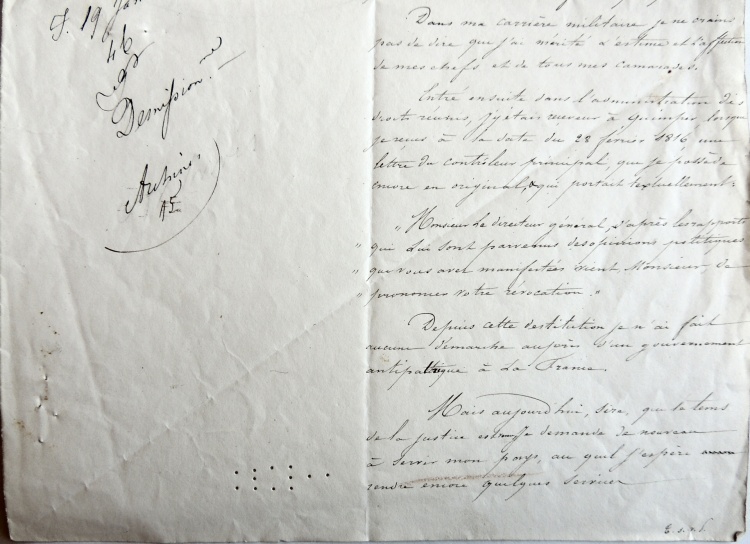 J. 19 Jan
46.
Demission.
Dans ma carrière militaire je ne crains
pas de dire que j'ai mérité l'estime et l'affection
de mes chefs et de tous mes camarades.
Entré ensuite dans l'administration des
droits réunis, j'y étais receveur à Quimper lorsque
je reçus à la date du 28 février 1816 une
lettre du contrôleur principal, que je possède
encore en original, & qui portait textuellement:
" Monsieur le directeur général, d'après les rapports
" qui lui sont parvenus des opinions politiques
" que vous avez manifestées vient, Monsieur, de
" prononcer votre révocation. "
Depuis cette destitution je n'ai fait
aucune démarche auprès d'un gouvernement
antipathique à la France.
Mais aujourd'hui, sire, que le tems
de la justice est Je demande de nouveau
à servir mon pays, au quel j'espère
rendre encore quelques services